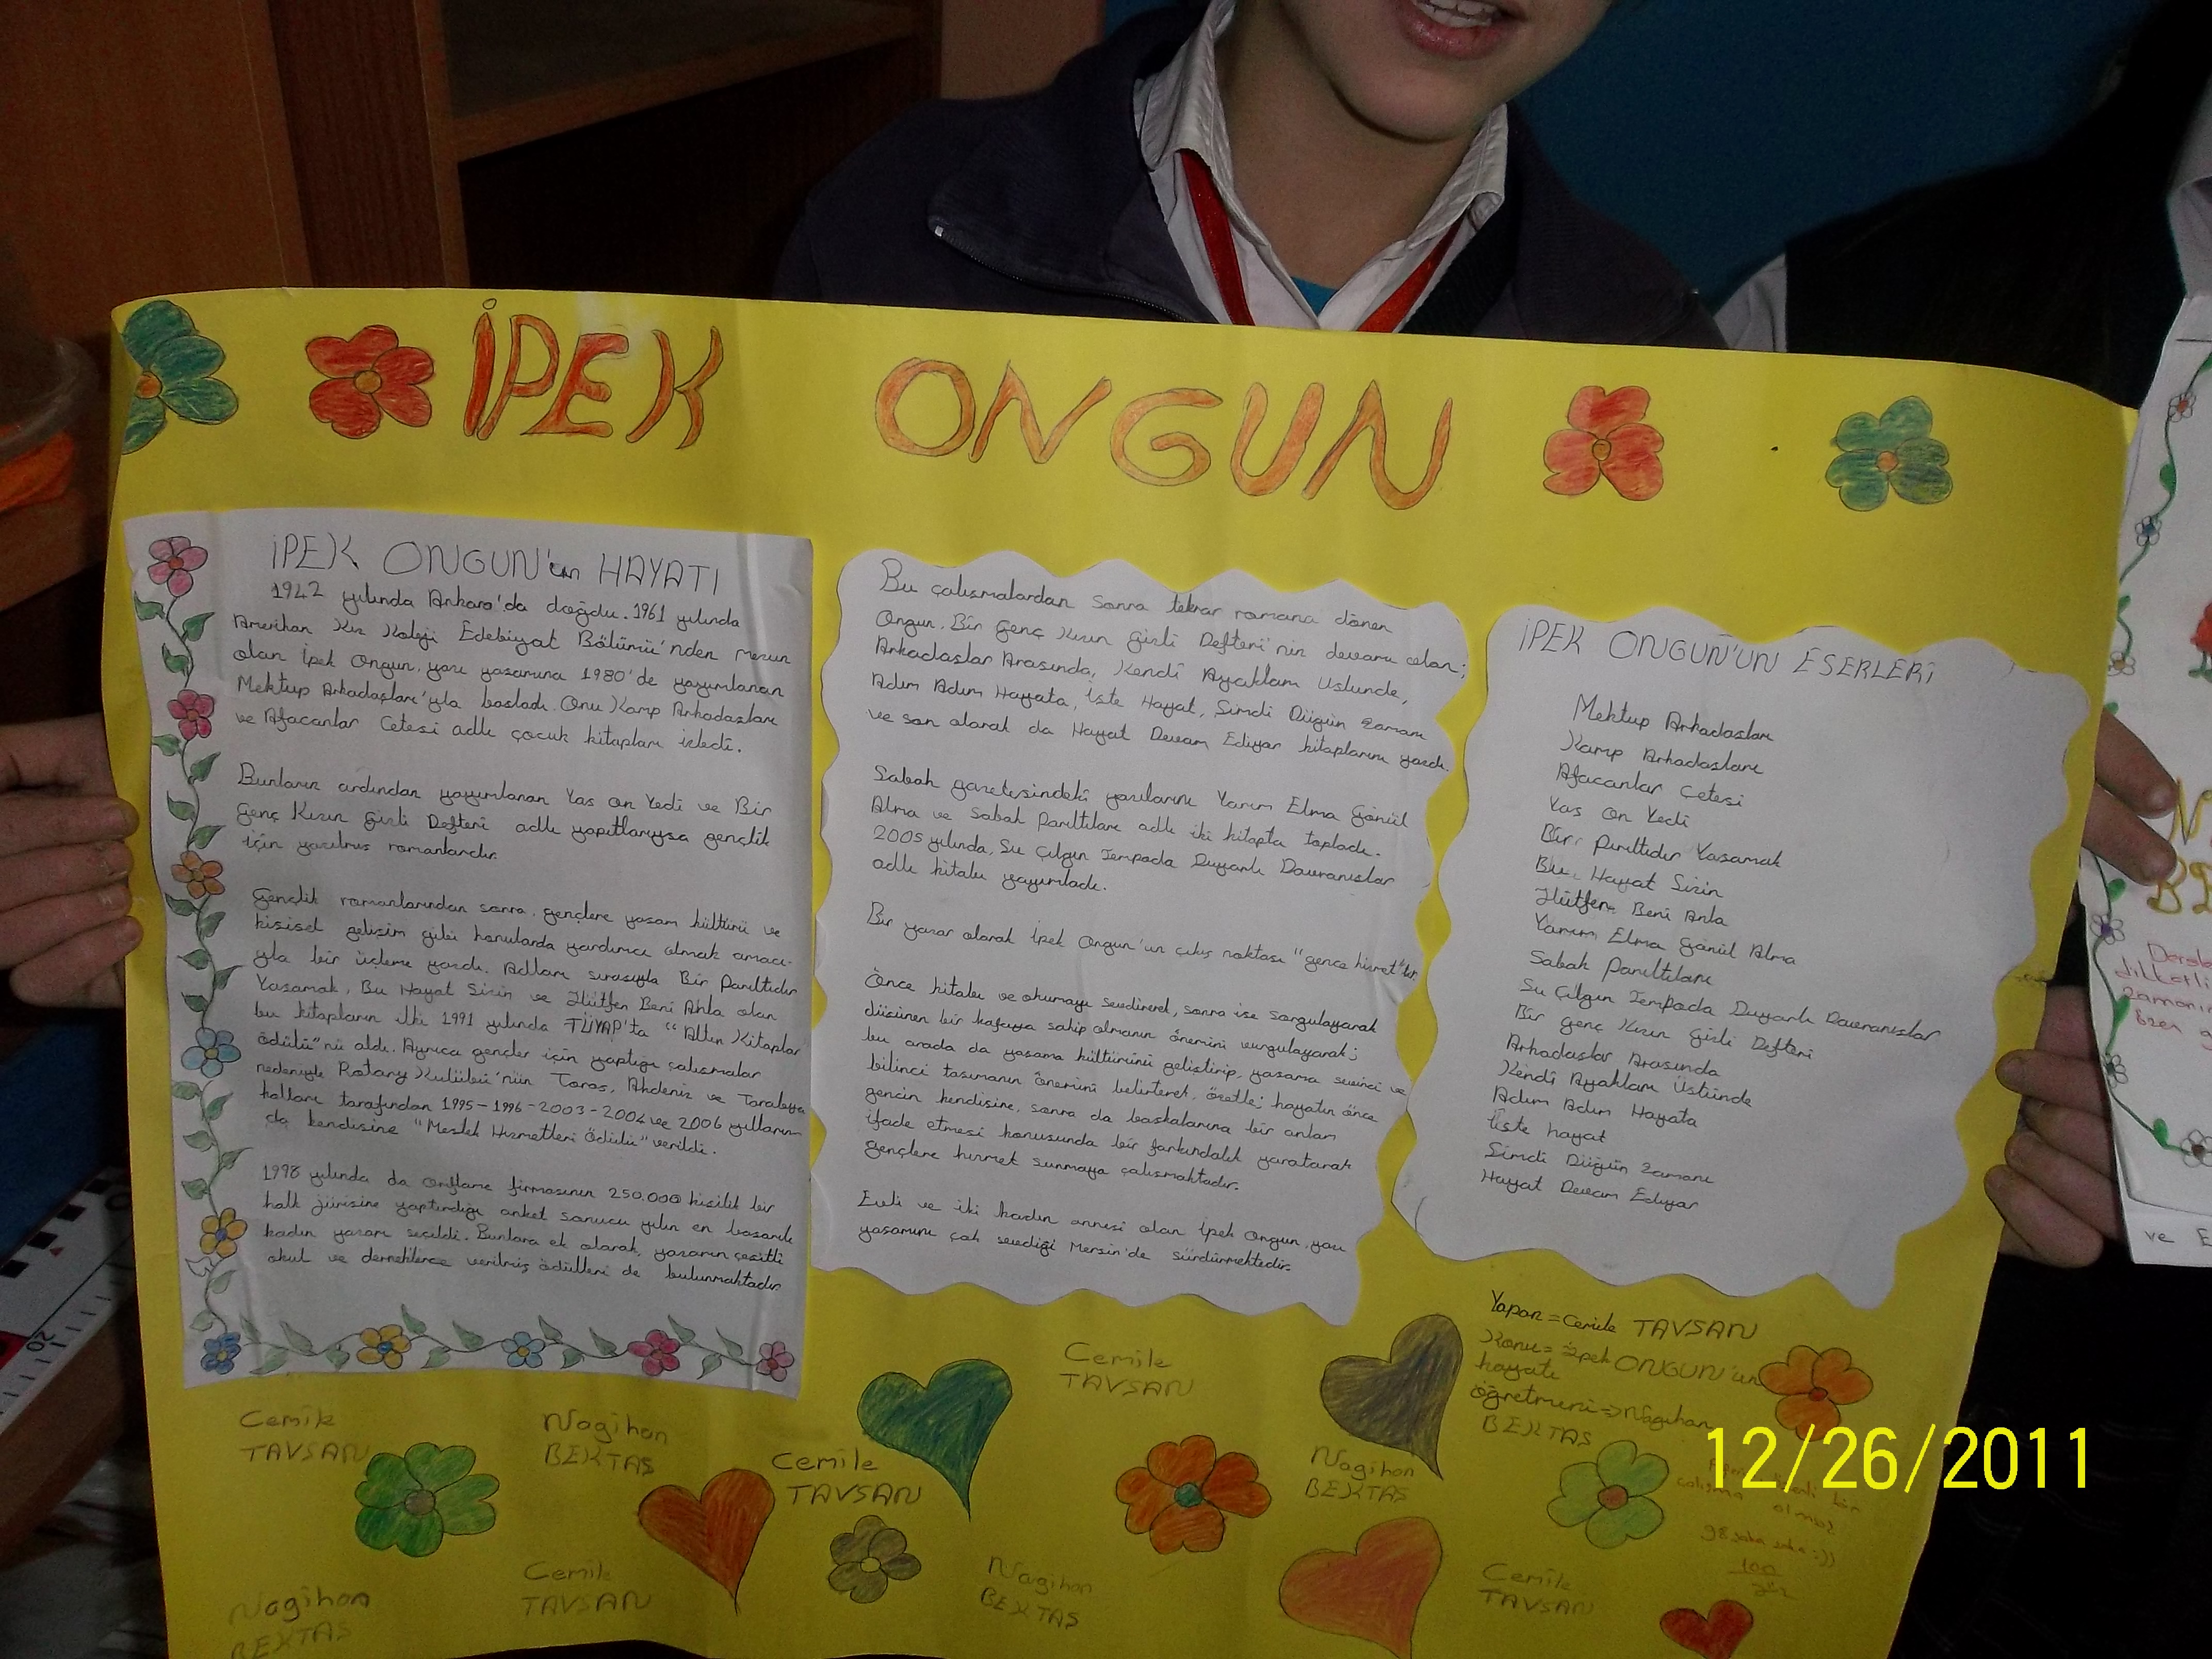 İPEK ONGUN
İPEK ONGUN'un HAYATI
1942 yılında Ankara'da doğdu. 1961 yılında
Amerikan Kız Koleji Edebiyat Bölümü'nden mezun
olan İpek Ongun, yazı yaşamına 1980'de yayımlanan
Mektup Arkadaşları'yla başladı. Onu Kamp Arkadaşları
ve Afacanlar Çetesi adlı çocuk kitapları izledi.
Bunların ardından yayımlanan Yaş on Yedi ve Bir
Genç Kızın Gizli Defteri adlı yapıtlarıysa gençlik
için yazılmış romanlardır.
Gençlik romanlarından sonra, gençlere yaşam kültürü ve
kişisel gelişim gibi konularda yardımcı olmak amacı-
yla bir üçleme yazdı. Adları sırasıyla Bir Parıltıdır
Yaşamak, Bu Hayat Sizin ve Lütfen Beni Anla olan
bu kitapların ilki 1991 yılında TÜYAP'ta "Altın Kitaplar
ödülü"nü aldı. Ayrıca gençler için yaptığı çalışmalar
nedeniyle Rotary Kulübü'nün Toros, Akdeniz ve Tarabya
kolları tarafından 1995-1996-2003-2004 ve 2006 yılların
da kendisine "Meslek Hizmetleri Ödülü" verildi.
1998 yılında da Oriflame firmasının 250.000 kişilik bir
halk jürisine yaptırdığı anket sonucu yılın en başarılı
kadın yazarı seçildi. Bunlara ek olarak, yazarın çeşitli
okul ve derneklerce verilmiş ödülleri de bulunmaktadır
Bu çalışmalardan sonra tekrar romana dönen
Ongun, Bir Genç Kızın Gizli Defteri'nin devamı olan;
Arkadaşlar Arasında, Kendi Ayakları Üstünde,
Adım Adım Hayata, İşte Hayat, Şimdi Düğün Zamanı
ve son olarak da Hayat Devam Ediyor kitaplarını yazdı.
Sabah gazetesindeki yazılarını Yarım Elma Gönül
Alma ve Sabah Parıltıları adlı iki kitapta topladı.
2005 yılında, Şu Çılgın Tempoda Duyarlı Davranışlar
adlı kitabı yayımladı.
Bir yazar olarak İpek Ongun'un çıkış noktası "gence hizmet"tir
Önce kitabı ve okumayı sevdirerek, sonra ise sorgulayarak
düşünen bir kafaya sahip olmanın önemini vurgulayarak;
bu arada da yaşama kültürünü geliştirip, yaşama sevinci ve
bilinci taşımanın önemini belirterek, özetle; hayatın önce
gencin kendisine, sonra da başkalarına bir anlam
ifade etmesi konusunda bir farkındalık yaratarak
gençlere hizmet sunmaya çalışmaktadır.
Evli ve iki kadın annesi olan İpek Ongun, yazı
yaşamını çok sevdiği Mersin'de sürdürmektedir.
İPEK ONGUN'UN ESERLERİ
Mektup Arkadaşları
Kamp Arkadaşları
Afacanlar Çetesi
Yaş On Yedi
Bir Parıltıdır Yaşamak
Bu Hayat Sizin
Lütfen Beni Anla
Yarım Elma Gönül Alma
Sabah Parıltıları
Şu Çılgın Tempoda Duyarlı Davranışlar
Bir Genç Kızın Gizli Defteri
Arkadaşlar Arasında
Kendi Ayakları Üstünde
Adım Adım Hayata
İşte hayat
Şimdi Düğün Zamanı
Hayat Devam Ediyor
Yapan = Cemile TAVŞAN
Konu = İpek ONGUN'un
hayatı
öğretmeni => Nagihan
BEKTAŞ
Cemile
TAVŞAN
Cemile
TAVŞAN
Nagihan
BEKTAŞ
Cemile
TAVŞAN
Nagihan
BEKTAŞ
Nagihan
BEKTAŞ
Cemile
TAVŞAN
Nagihan
BEKTAŞ
Cemile
TAVŞAN
bir
çalışma olmuş
98 şaka şaka :))
100
12/26/2011
ve